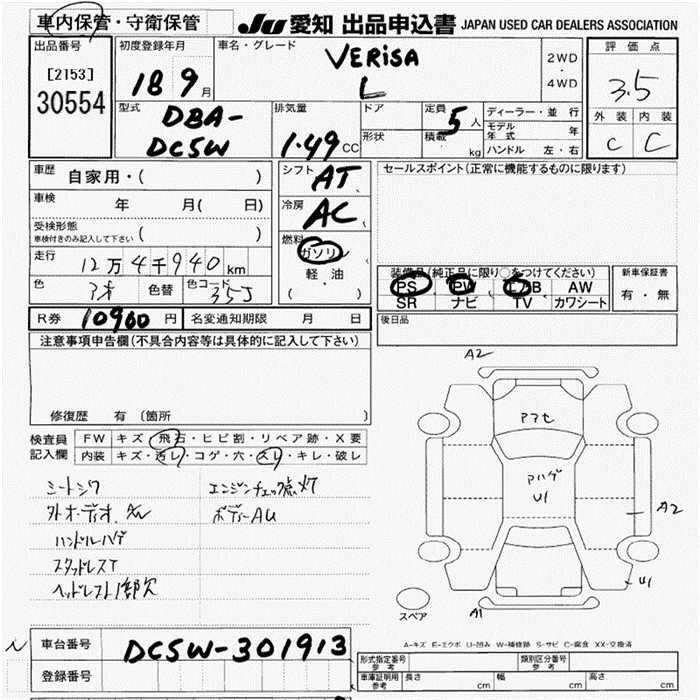 車内保管・守衛保管
JU 愛知 出品申込書 JAPAN USED CAR DEALERS ASSOCIATION
出品番号
[2153]
30554
初度登録年月
18 9月
車名・グレード
VERISA
L
2WD
・
4WD
評価点
3.5
外装 内装
C C
型式
DBA-
DC5W
排気量
1.49CC
ドア
形状
定員
5人
積載
kg
ディーラー・並行
モデル年式 年
ハンドル 左・右
車歴 自家用・( )
車検 年 月( 日)
受検形態
車検付きのみ記入して下さい ( )
走行 12万4千940km
色 アオ 色替 色コード 35J
シフト AT
冷房 AC
燃料
ガソリン
軽・油
( )
セールスポイント(正常に機能するものに限ります)
装備品(純正品に限り○をつけてください)
PS PW エアB AW
SR ナビ TV カワシート
新車保証書
有・無
R券 10960円 名変通知期限 月 日
後日品
注意事項申告欄(不具合内容等は具体的に記入して下さい)
修復歴 有 (箇所 )
検査員記入欄
FW キズ・飛石・ヒビ割・リペア跡・X要
内装 キズ・汚レ・コゲ・穴・スレ・キレ・破レ
シートシワ
外オーディオ、
ハンドルハゲ
スタッドレスT
ヘッドレスト1部欠
エンジンチェック点灯
ボディーAU
A2
アハゲ
U1
A2
U1
A1
スペア
A-キズ E-エクボ U-凹み W-補修跡 S-サビ C-腐食 XX-交換済
車台番号 DC5W-301913
登録番号
型式指定番号
参考
類別区分番号
参考
車庫証明用
参考
長さ cm 幅 cm 高さ cm